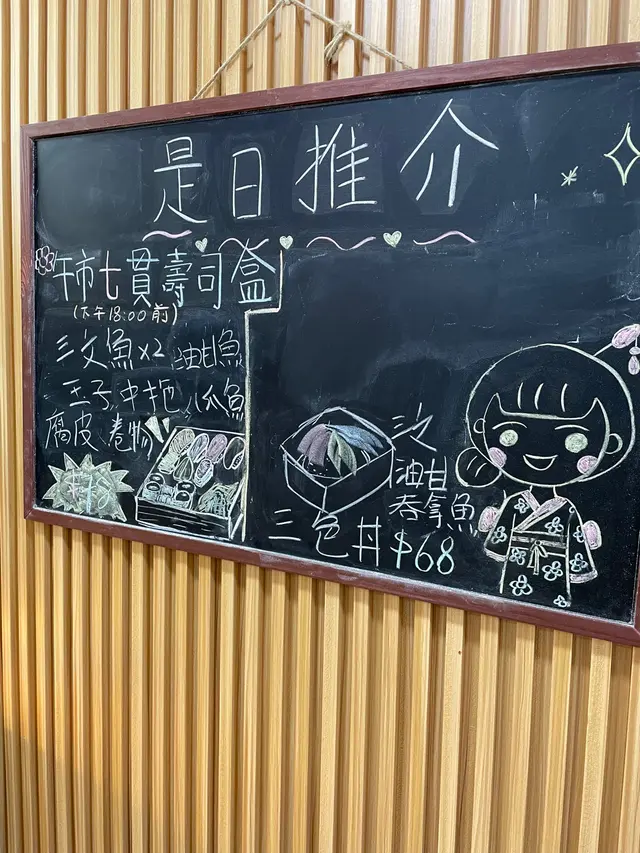 是日推介
午市七貫壽司盒
(下午18:00前)
三文魚x2 油甘魚
玉子 中拖 八爪魚
腐皮 卷物
三文
油甘
吞拿魚
三色丼 $68